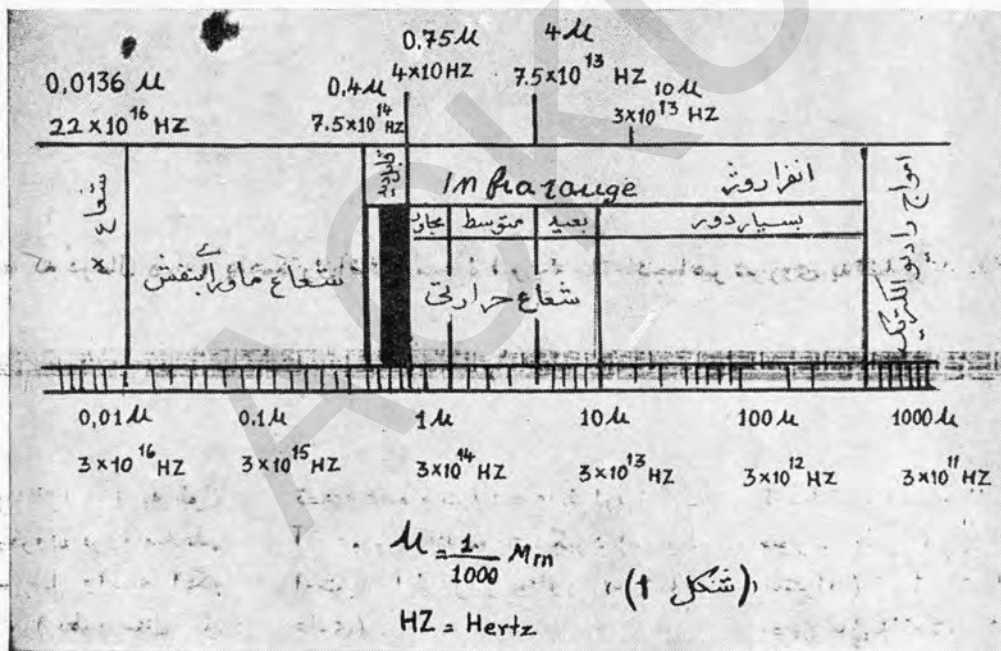 0,0136 µ
22 x 10¹⁶ HZ
0,4 µ
7.5 x 10¹⁴ HZ
0.75 µ
4 x 10 HZ
4 µ
7.5 x 10¹³ HZ
10 µ
3 x 10¹³ HZ
شعاع x
شعاع ماورای بنفش
Infrarauge
انفراروژ
متوسط
بعید
بسیار دور
شعاع حرارتی
امواج رادیو الکتریک
0,01 µ
0.1 µ
1 µ
10 µ
100 µ
1000 µ
3 x 10¹⁶ HZ
3 x 10¹⁵ HZ
3 x 10¹⁴ HZ
3 x 10¹³ HZ
3 x 10¹² HZ
3 x 10¹¹ HZ
µ = 1/1000 Mm
HZ = Hertz
(شکل 1)
ACKU